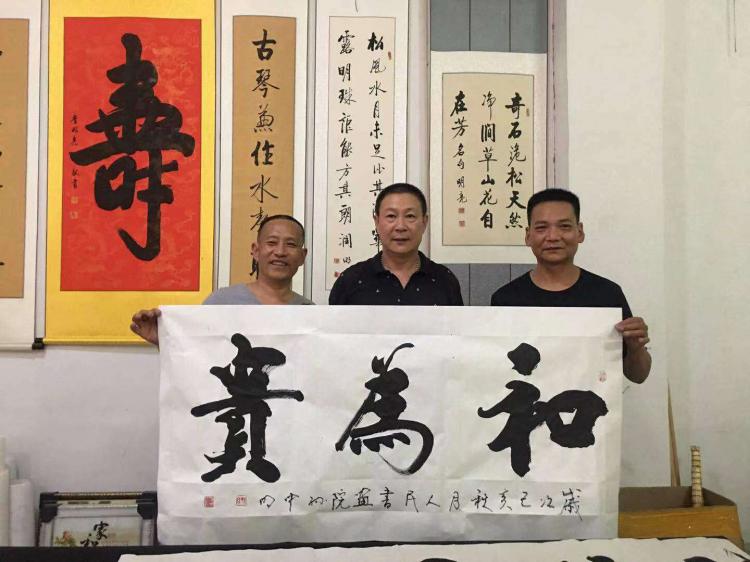 壽
古琴兼住水
松風水月未足比其
露明珠詎能方其朗潤
奇石松天然
净澗草山花自
在芳 名句 明亮
和為貴
歲次己亥秋月人民書畫院
家和